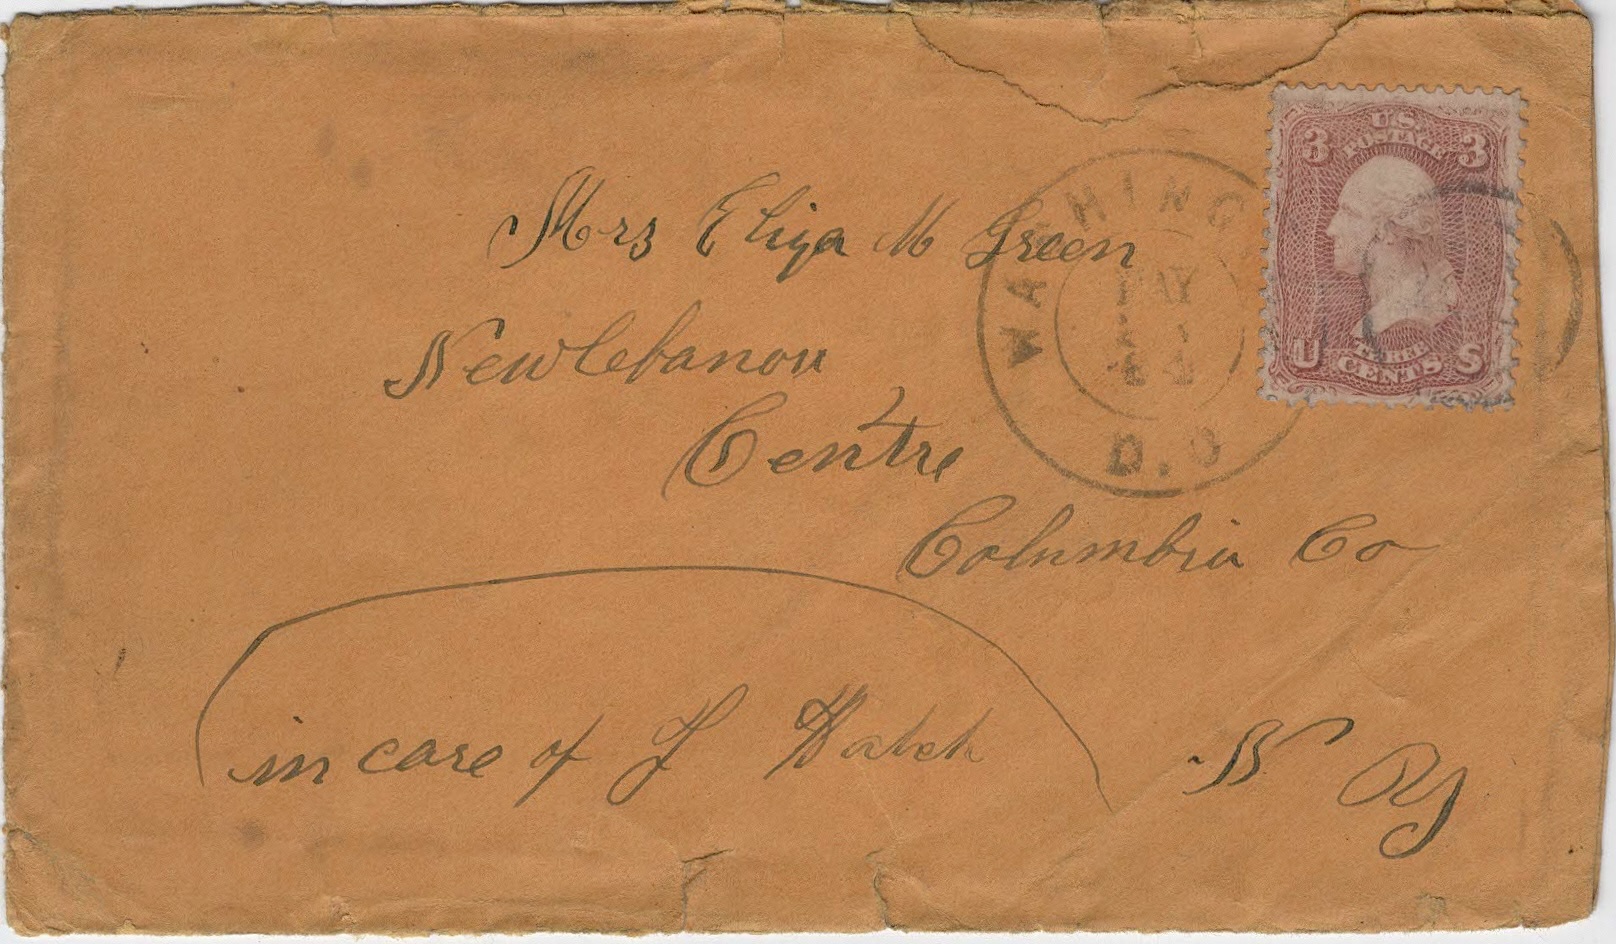 U.S. POSTAGE
3 3
THREE
U CENTS S
WASHING
MAY
D.C
Mrs Eliza M Green
New Lebanon
Centre
Columbia Co
in care of F Hatch
N Y